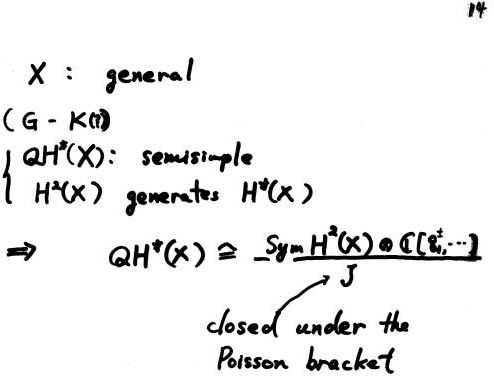 14
X : general
(G - K(i))
QH*(X): semisimple
H²(X) generates H*(X)
⇒ QH*(X) ≅ Sym H²(X) ⊗ ℂ[q₁^±, ...] / J
closed under the
Poisson bracket